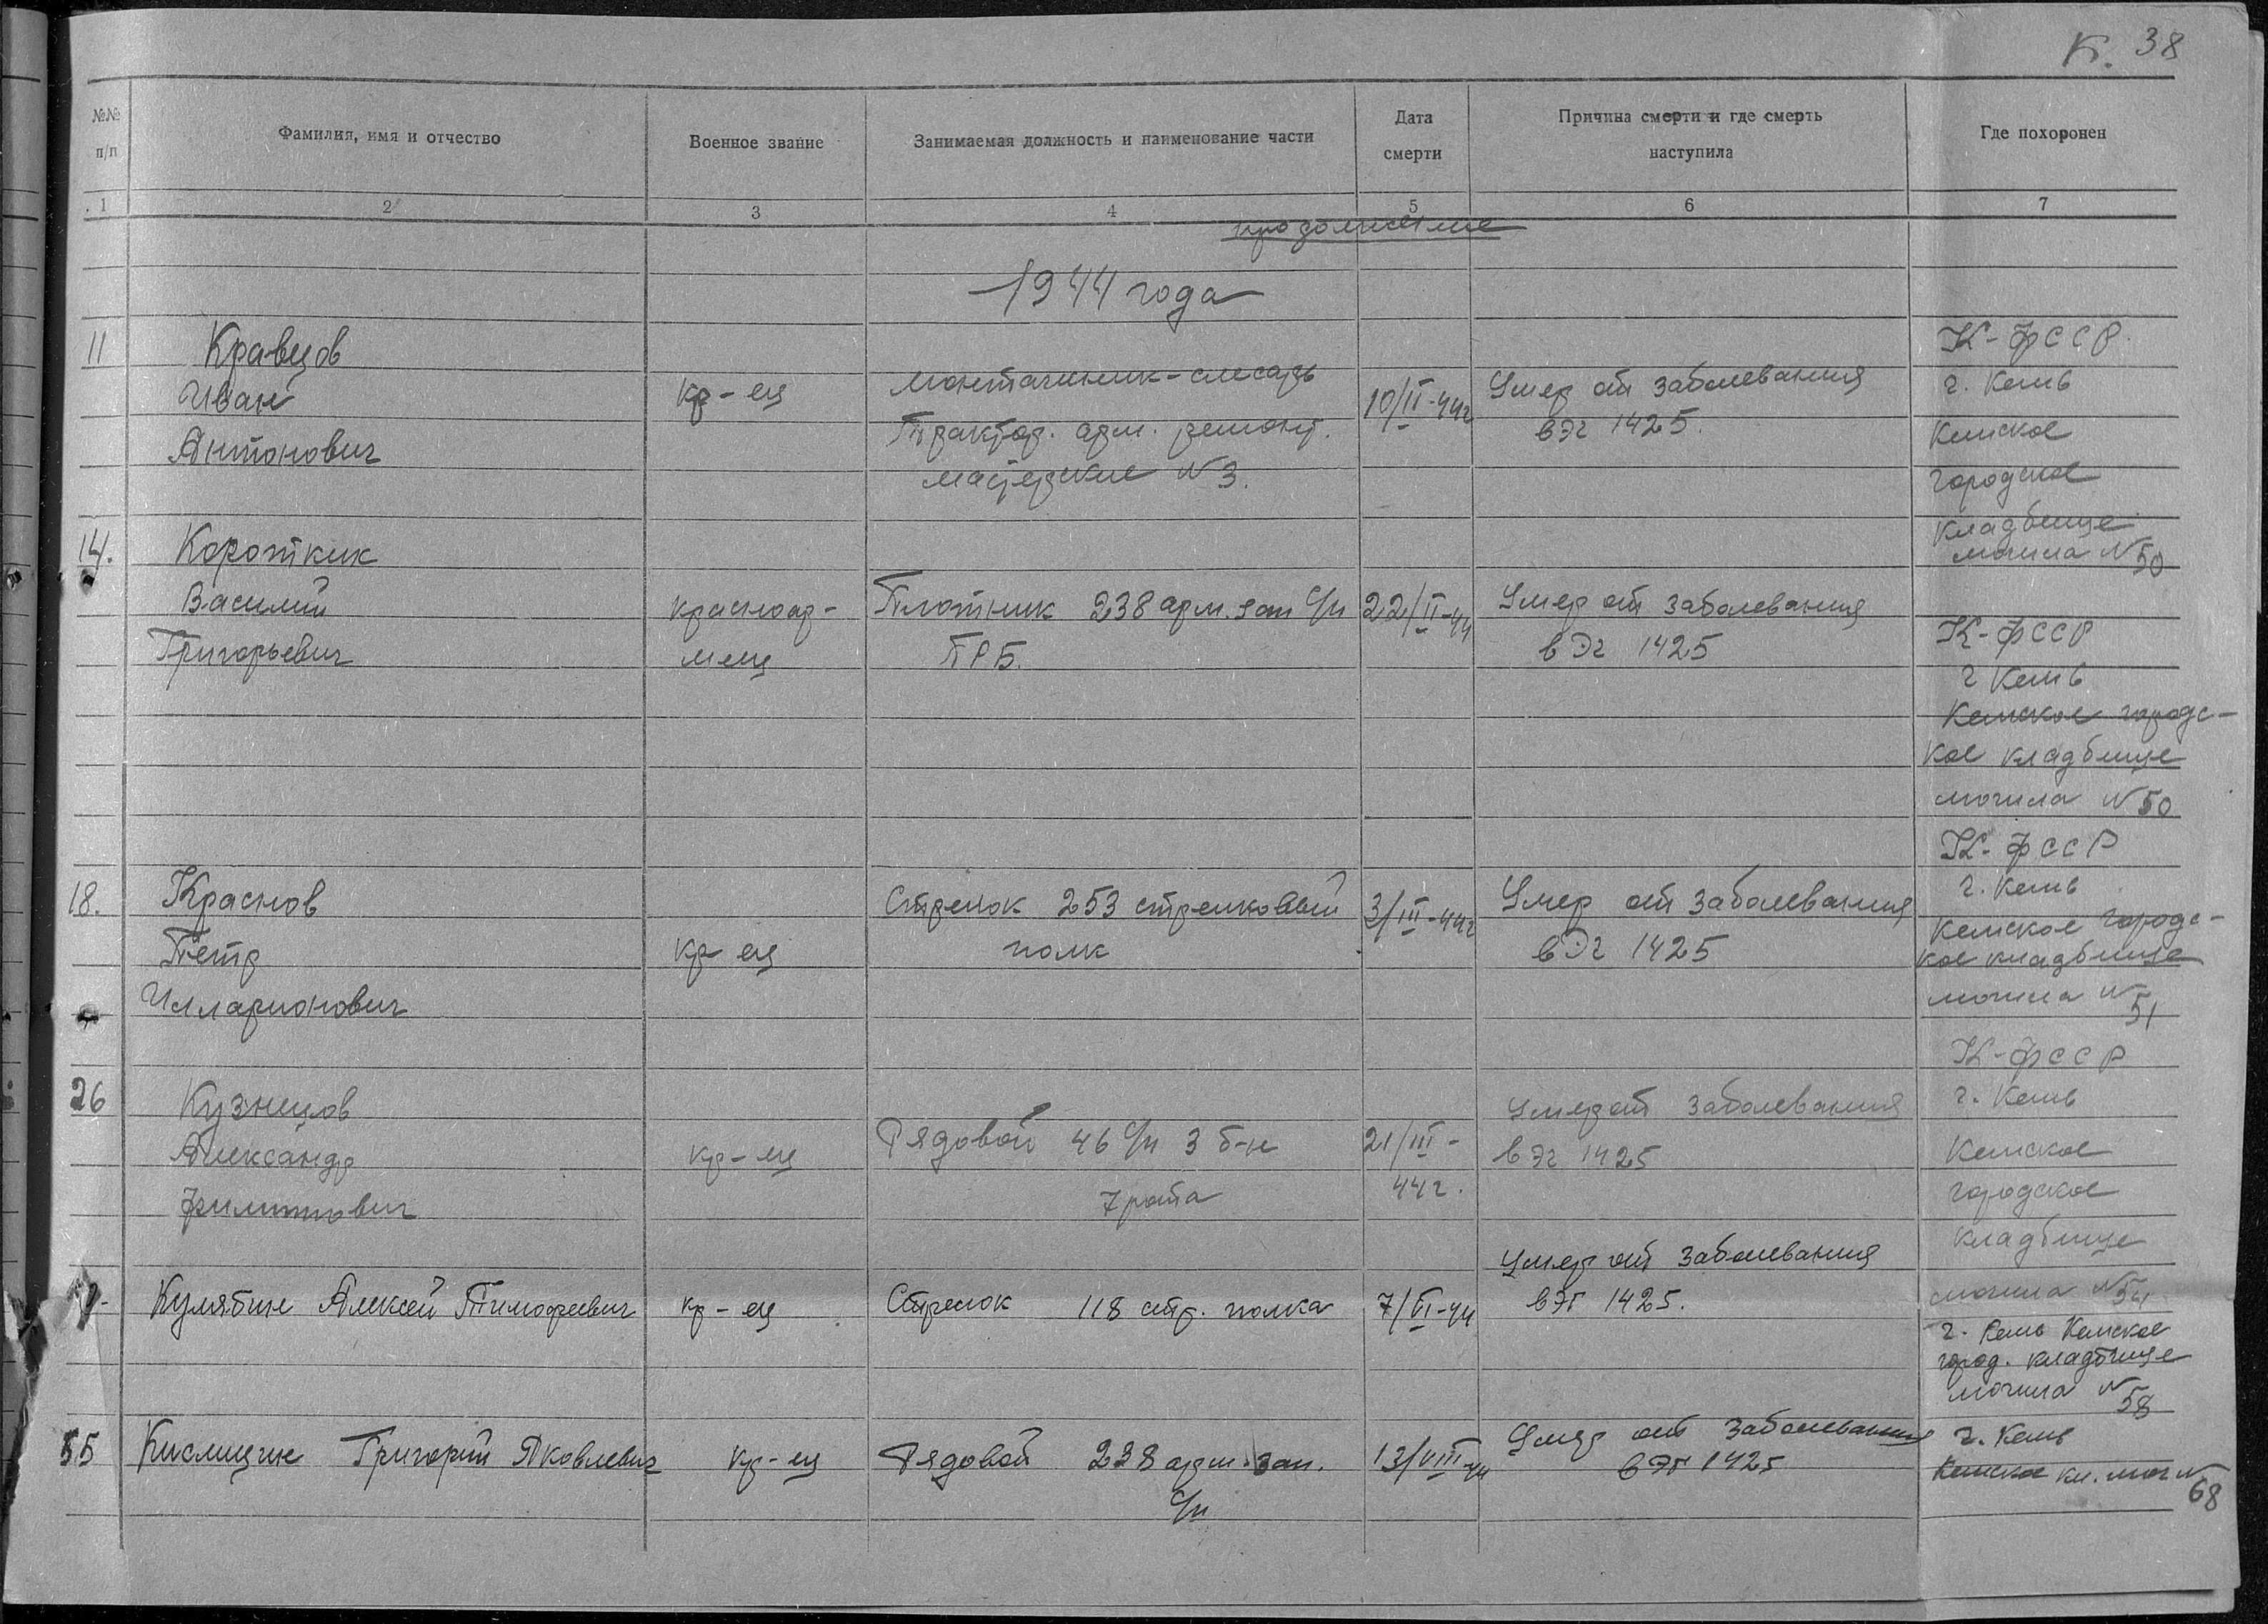 К. 38
№№ п/п
Фамилия, имя и отчество
Военное звание
Занимаемая должность и наименование части
Дата смерти
Причина смерти и где смерть наступила
Где похоронен
1 2 3 4 5 6 7
продолжение
1944 года
11
Кравцов
Иван
Антонович
кр-ец
монтажник-слесарь
Трактор. арм. ремонт.
мастерские №3.
10/II-44г
Умер от заболевания
в ЭГ 1425.
К-ФССР.
г. Кемь
Кемское
городское
кладбище
могила №50
14.
Коротких
Василий
Григорьевич
красноар-
меец
Плотник 238 арм. зап с/п
ПРБ.
22/II-44
Умер от заболевания
в ЭГ 1425
К-ФССР
г Кемь
Кемское городс-
кое кладбище
могила №50
18.
Краснов
Петр
Илларионович
кр ец
Стрелок 253 стрелковый
полк
3/III-44г
Умер от заболевания
в ЭГ 1425
К-ФССР
г. Кемь
Кемское городс-
кое кладбище
могила №51
26
Кузнецов
Александр
Филиппович
кр-ец
Рядовой 46 с/п 3 б-н
7 рота
21/III-
44г.
Умер от заболевания
в ЭГ 1425
К-ФССР
г. Кемь
Кемское
городское
кладбище
могила №54
Кулябин Алексей Тимофеевич
кр-ец
Стрелок 118 стр. полка
7/VI-44
Умер от заболевания
в ЭГ 1425.
г. Кемь Кемское
город. кладбище
могила №58
55
Кислицин Григорий Яковлевич
кр-ец
Рядовой 238 арм. зап.
с/п
13/VIII-44
Умер от заболевания
в ЭГ 1425
г. Кемь
Кемское кл. мог №68